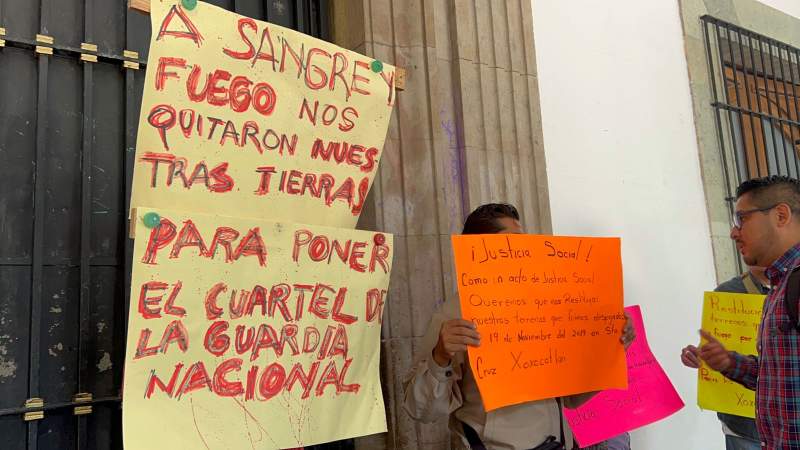 A SANGRE Y
FUEGO NOS
QUITARON NUES
TRAS TIERRAS
PARA PONER
EL CUARTEL DE
LA GUARDIA
NACIONAL
¡Justicia Social!
Como in acto de Justicia Social
Queremos que nos Restituyan
nuestros terrenos que fuimos despojados
19 de Noviembre del 2019 en Sta
Cruz Xoxocotlan
Social
Restitución
terrenos que
fueron por
Para
Xoxoc